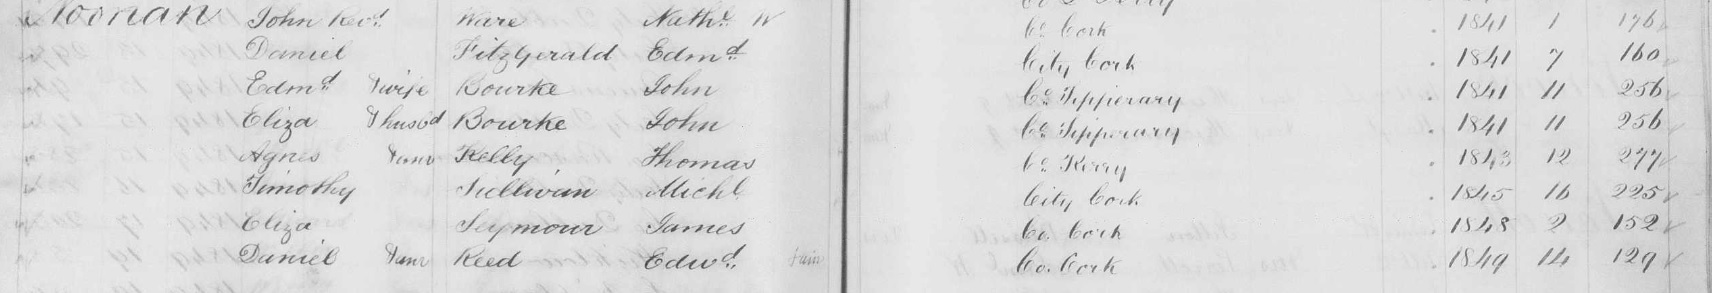 Noonan John Revd. Ware Nathl. W Co. Cork . 1841 1 176
Daniel Fitzgerald Edmd. City Cork . 1841 7 160
Edmd. &wife Bourke John Co. Tipperary . 1841 11 256
Eliza &husbd Bourke John Co. Tipperary . 1841 11 256
Agnes &anr Kelly Thomas Co. Kerry . 1843 12 277
Timothy Sullivan Michl. City Cork . 1845 16 225
Eliza Seymour James Co. Cork . 1848 2 152
Daniel &anr Reed Edwd. &anr Co. Cork . 1849 14 129